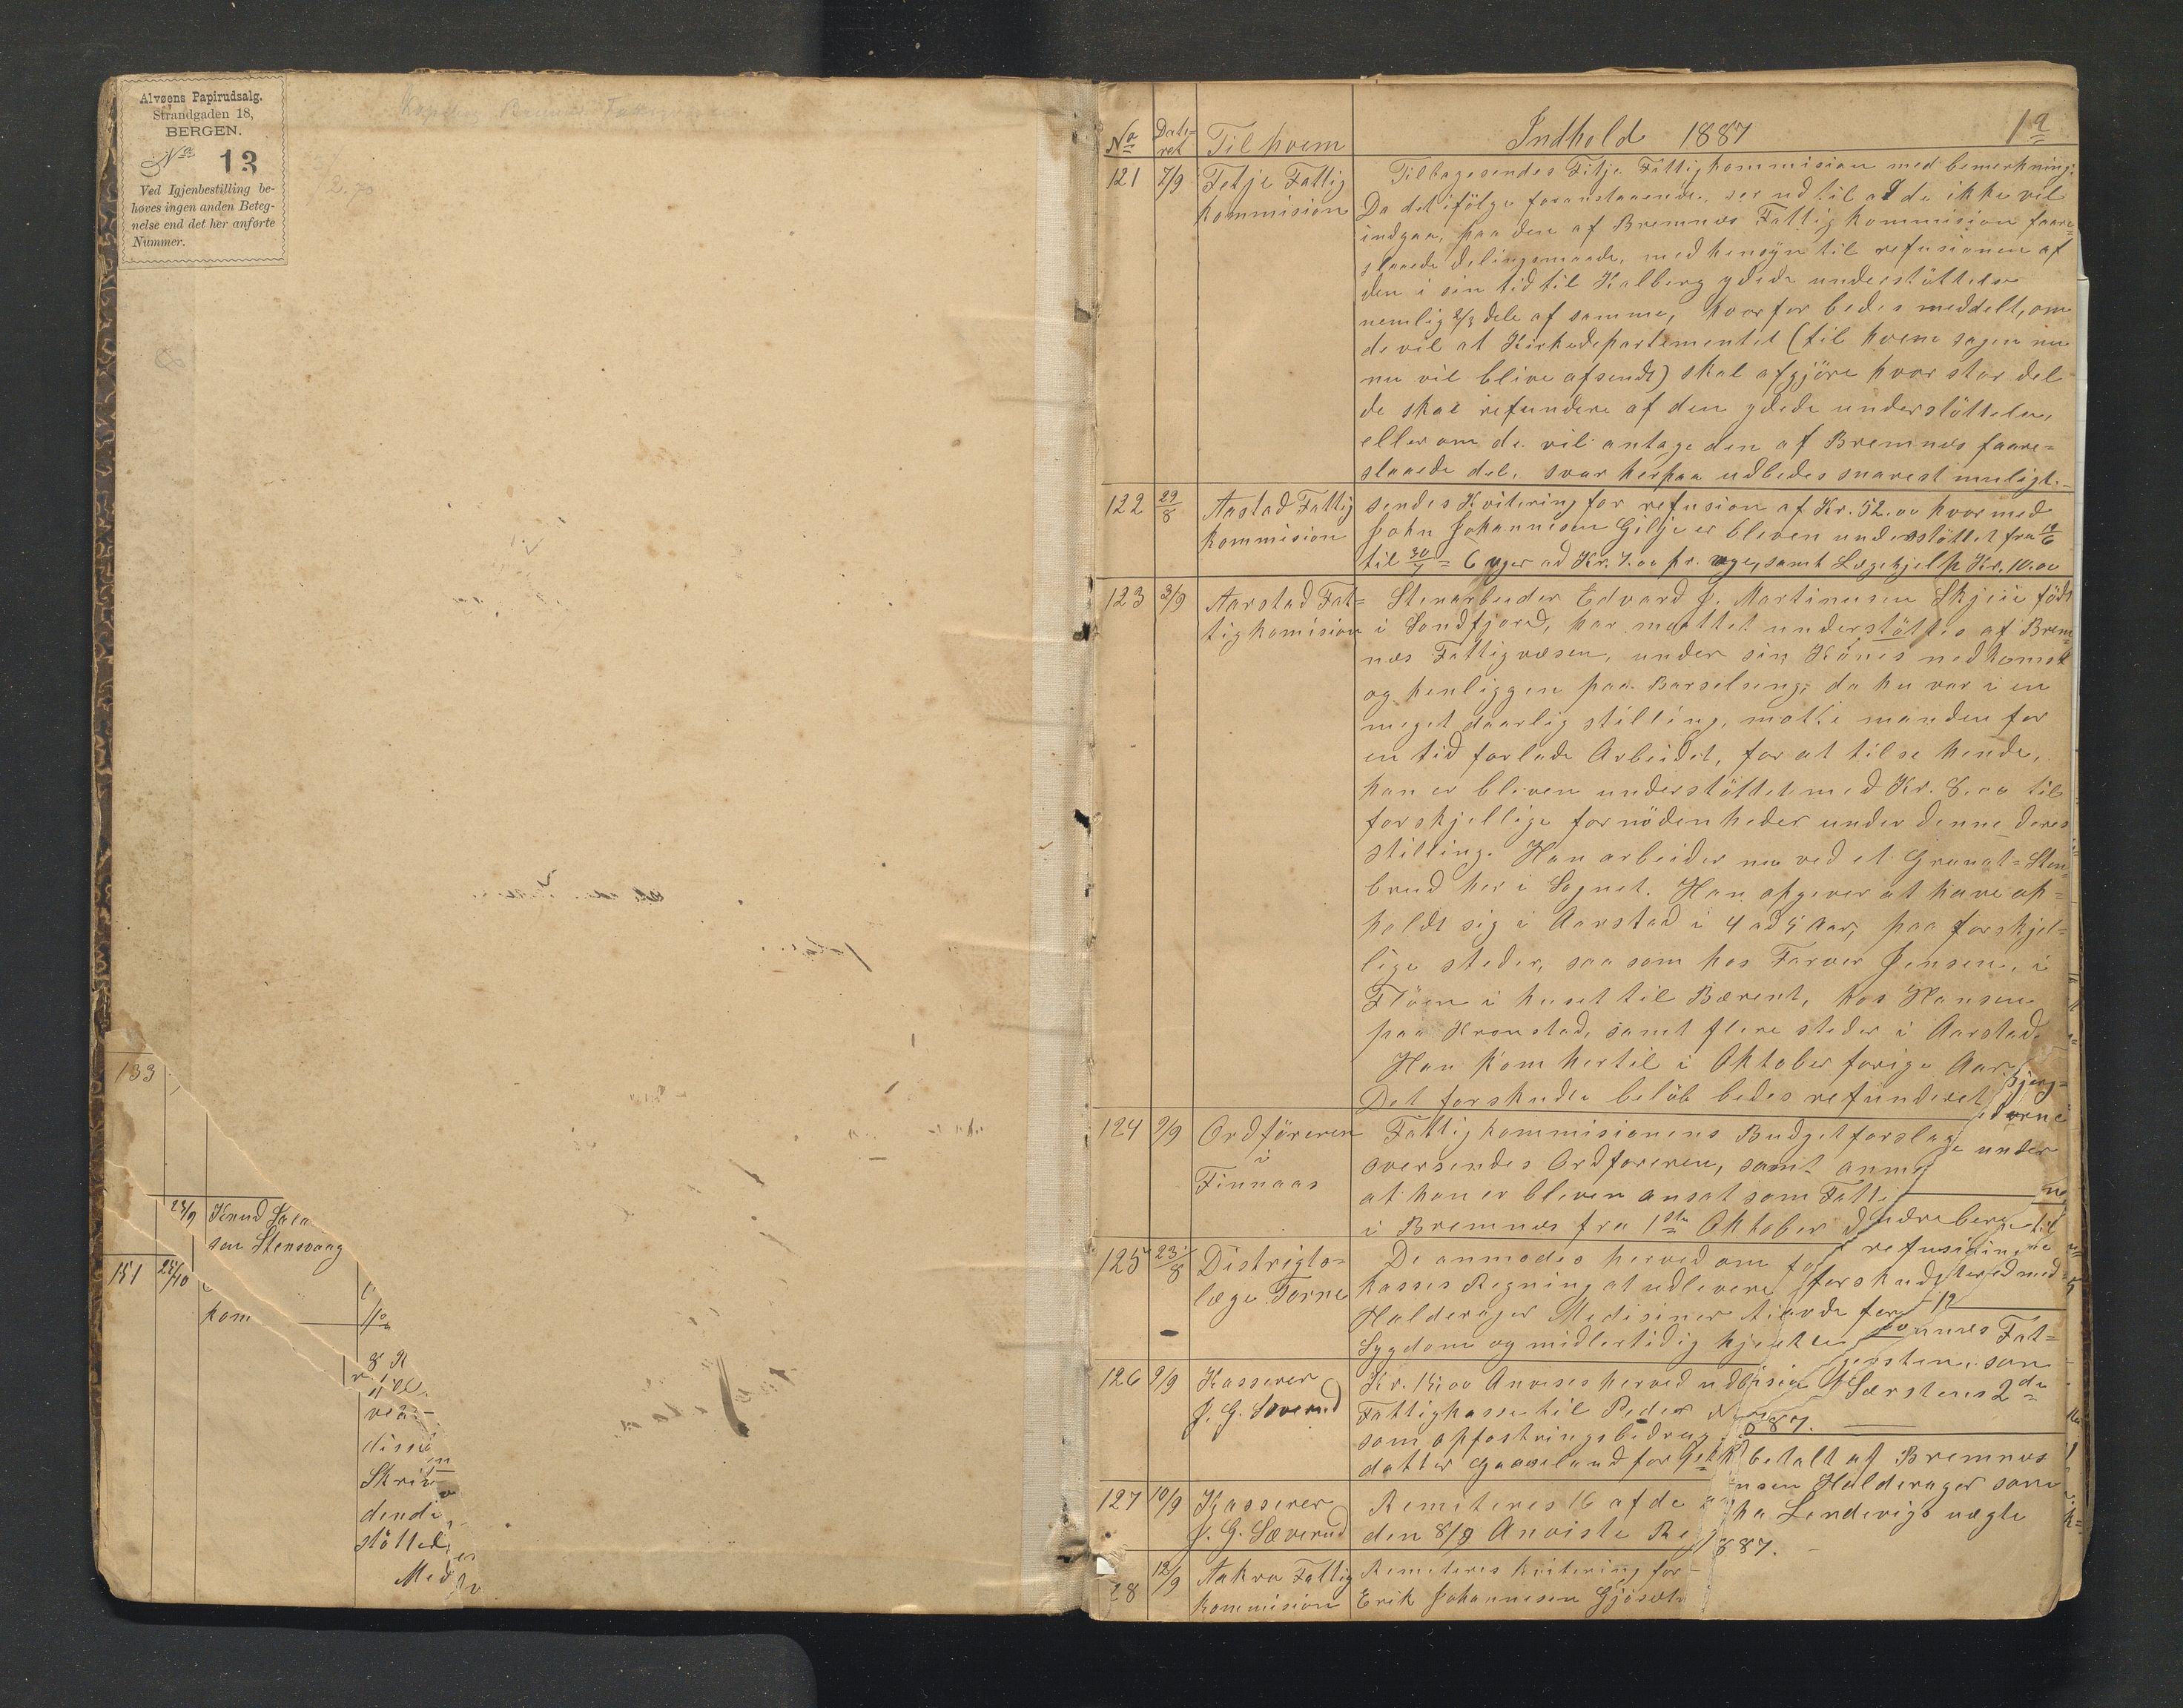 Alvøens Papirudsalg.
Strandgaden 18,
BERGEN.
No 13
Ved Igjenbestilling be-
høves ingen anden Beteg-
nelse end det her anførte
Nummer.
2.70
133
23/9 Knud Sala
sen Stensvaag
151 25/10
kom
8 K
vea
Skriv
dendi
støtted
Med
No Date= ret Til hvem Indhold 1887 1a
121 7/9 Fetje Fattig kommision
Tilbagesendes Fitje Fattigkommision med bemerkning:
Da det ifölge foranstaaende, ser ud til at de ikke vil
indgaa, paa den af Bremnes Fattigkommision faare=
slaaede delingsmaade, med hensyn til refusionen af
den i sin tid til Kalberg ydede understöttelse
nemlig 2/3 dele af samme, hvorfor bedes meddelt, om
de vil at Kirkedepartementet (til hvem sagen nu
nu vil blive afsendt) skal afgjöre hvor stor del
de skal refundere af den ydede understöttelse,
eller om de vil antage den af Bremnes faare=
slaaede del, svar herpaa udbedes snarest muligt.
122 29/8 Aastad Fattig kommision
sendes Kvitering for refusion af Kr. 52.00 hvormed
John Johannesen Gilje er bleven understöttet fra 19/6
til 30/7 = 6 uger ad Kr. 7.00 pr. uge, samt Lægehjelp Kr. 10.00
123 3/9 Aarstad Fat= tigkomision
Stenarbeider Edvard J. Martinusen Skjeie födt
i Sondfjord, har maattet understöttes af Brem=
nes Fattigvæsen, under sin Könes nedkomst
og henliggen paa Barselseng, da hu var i en
meget daarlig stilling, motte manden for
en tid forlade Arbeidet, for at til se hende,
han er bleven understöttet med Kr. 8.00 til
forskjellige fornödenheder under denne deres
stilling. Han arbeider nu ved et Granat=Sten=
brud her i Sognet. Han opgiver at have op=
holdt sig i Aarstad i 4 ad 5 Aar, paa forskjel=
lige steder, saa som hos Farver Jensen, i
Flöen i huset til Bærent, hos Hansen
paa Kronstad, samt flere steder i Aarstad.
Han kom hertil i Oktober forige Aar,
Det forskudte belöb bedes refunderet
124 9/9 Ordföreren i Finnaas
Fattigkommisionens Budgetforslag
oversendes Ordföreren, samt anme
at han er bleven ansat som Fatti
i Bremnes fra 1ste Oktober
125 23/8 Distrigts= læge Torne
De anmodes herved om
kasses Regning at udlevere
Halderager Medisiner
Sygdom og midlertidig
126 9/9 Kasserer J. G. Sæverud
Kr. 15.00 Anvises herved udb
Fattigkasse til Peder
som opfostringsbidrag
datter Gaaseland for
127 10/9 Kasserer J. G. Sæverud
Remiteres 16 af de
den 8/9 Anviste Reg
28 12/9 Aakra Fattig kommision
Remiteres kvitering for
Erik Johannesen
Bjerg=
under
refusion
forskudt
Fat=
som
2de
887.
betalt af Bremnes
nsen Halderager som
887.